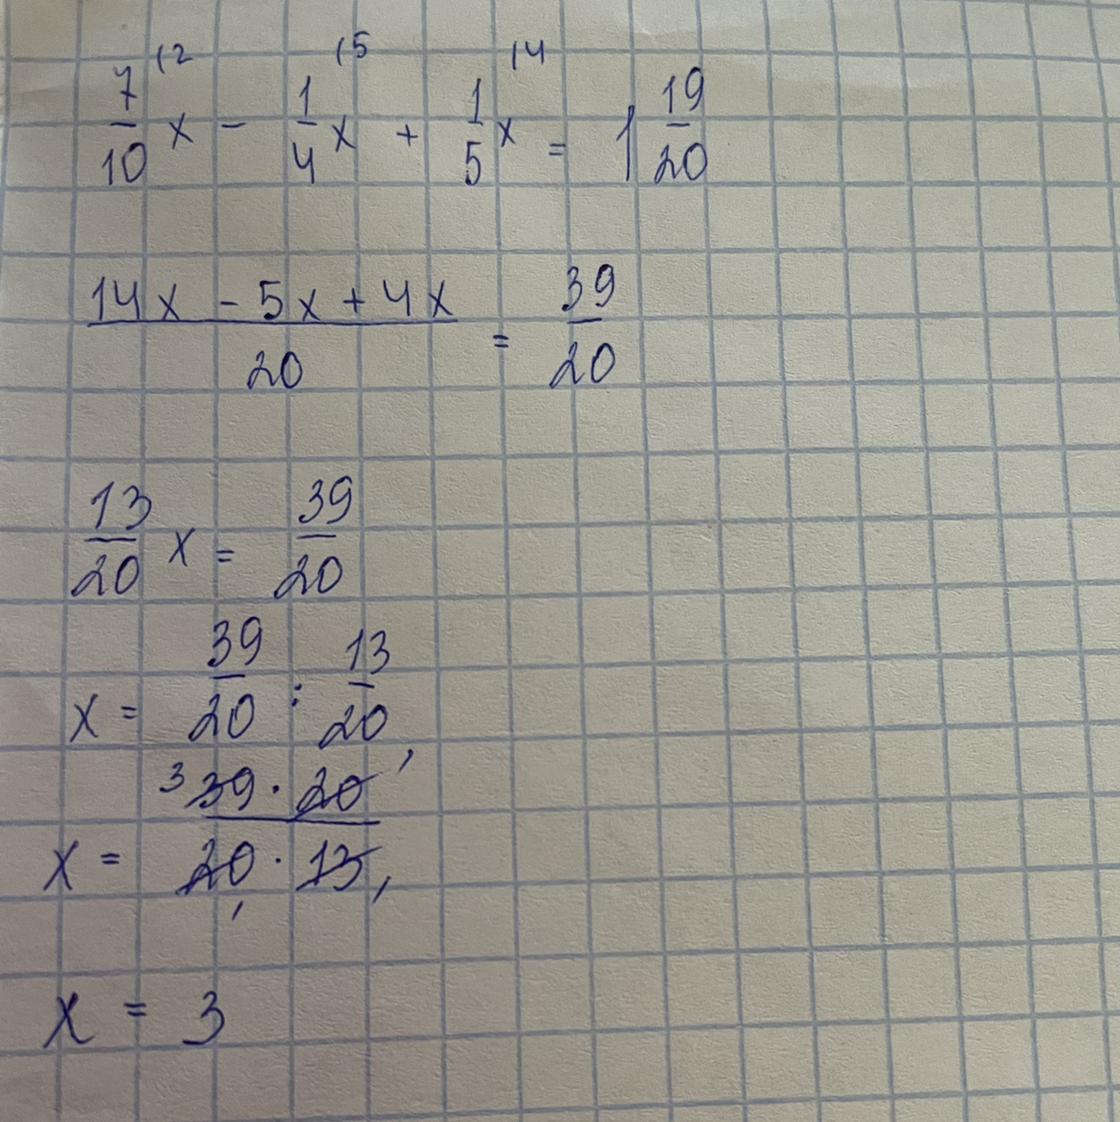 7/10 x (2 - 1/4 x (5 + 1/5 x (4 = 1 19/20
14x - 5x + 4x / 20 = 39/20
13/20 x = 39/20
x = 39/20 : 13/20
x = 3 39 · 20 / 20 · 13
x = 3